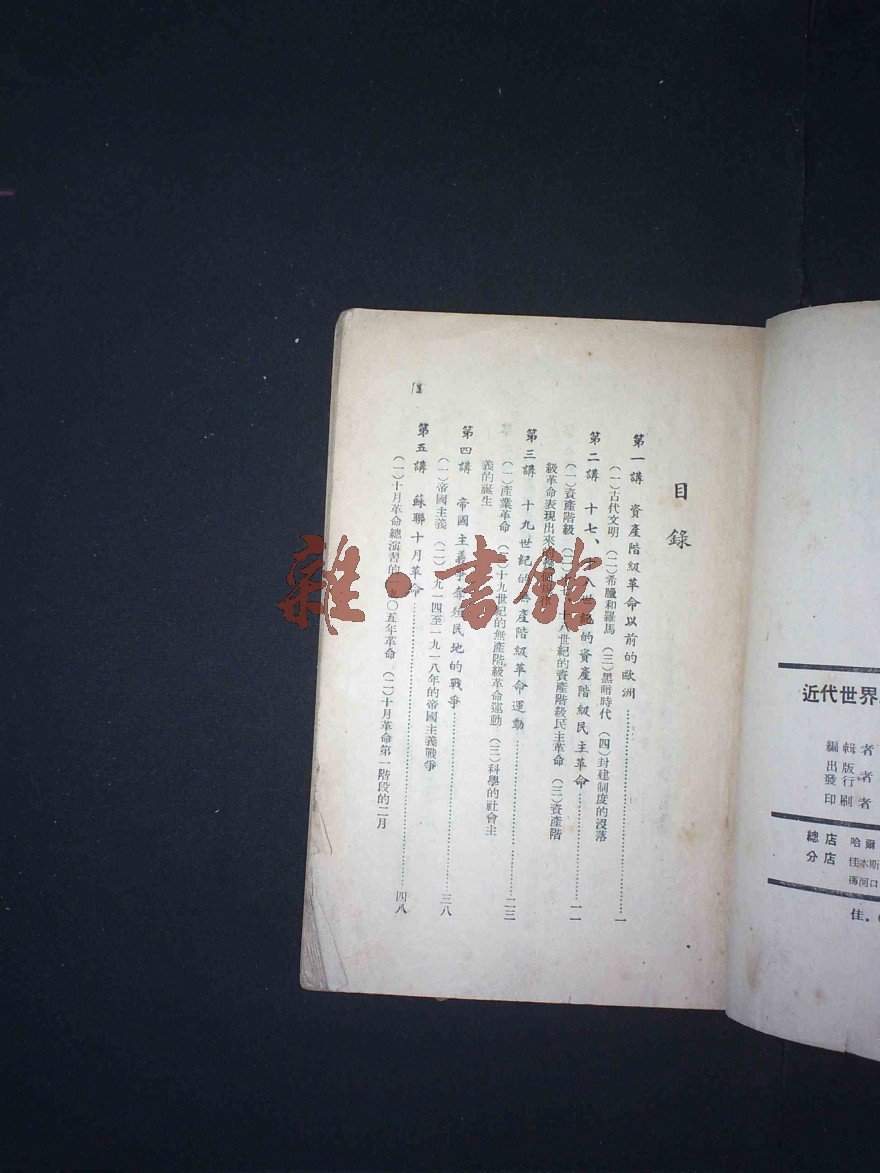 目錄
第一講 資產階級革命以前的歐洲……一
(一)古代文明 (二)希臘和羅馬 (三)黑暗時代 (四)封建制度的沒落
第二講 十七、八世紀的資產階級民主革命……一一
(一)資產階級 (二)十七、十八世紀的資產階級民主革命 (三)資產階
級革命表現出來的
第三講 十九世紀的無產階級革命運動……二三
(一)產業革命 (二)十九世紀的無產階級革命運動 (三)科學的社會主
義的誕生
第四講 帝國主義爭奪殖民地的戰爭……三八
(一)帝國主義 (二)一九一四至一九一八年的帝國主義戰爭
第五講 蘇聯十月革命……四八
(一)十月革命總演習的一九〇五年革命 (二)十月革命第一階段的二月
近代世界
編輯者
出版
發行者
印刷者
總店 哈爾
分店 佳木斯
佳.
雜·書館